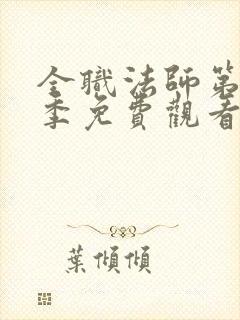 全職法師第
季免費觀看
葉傾傾